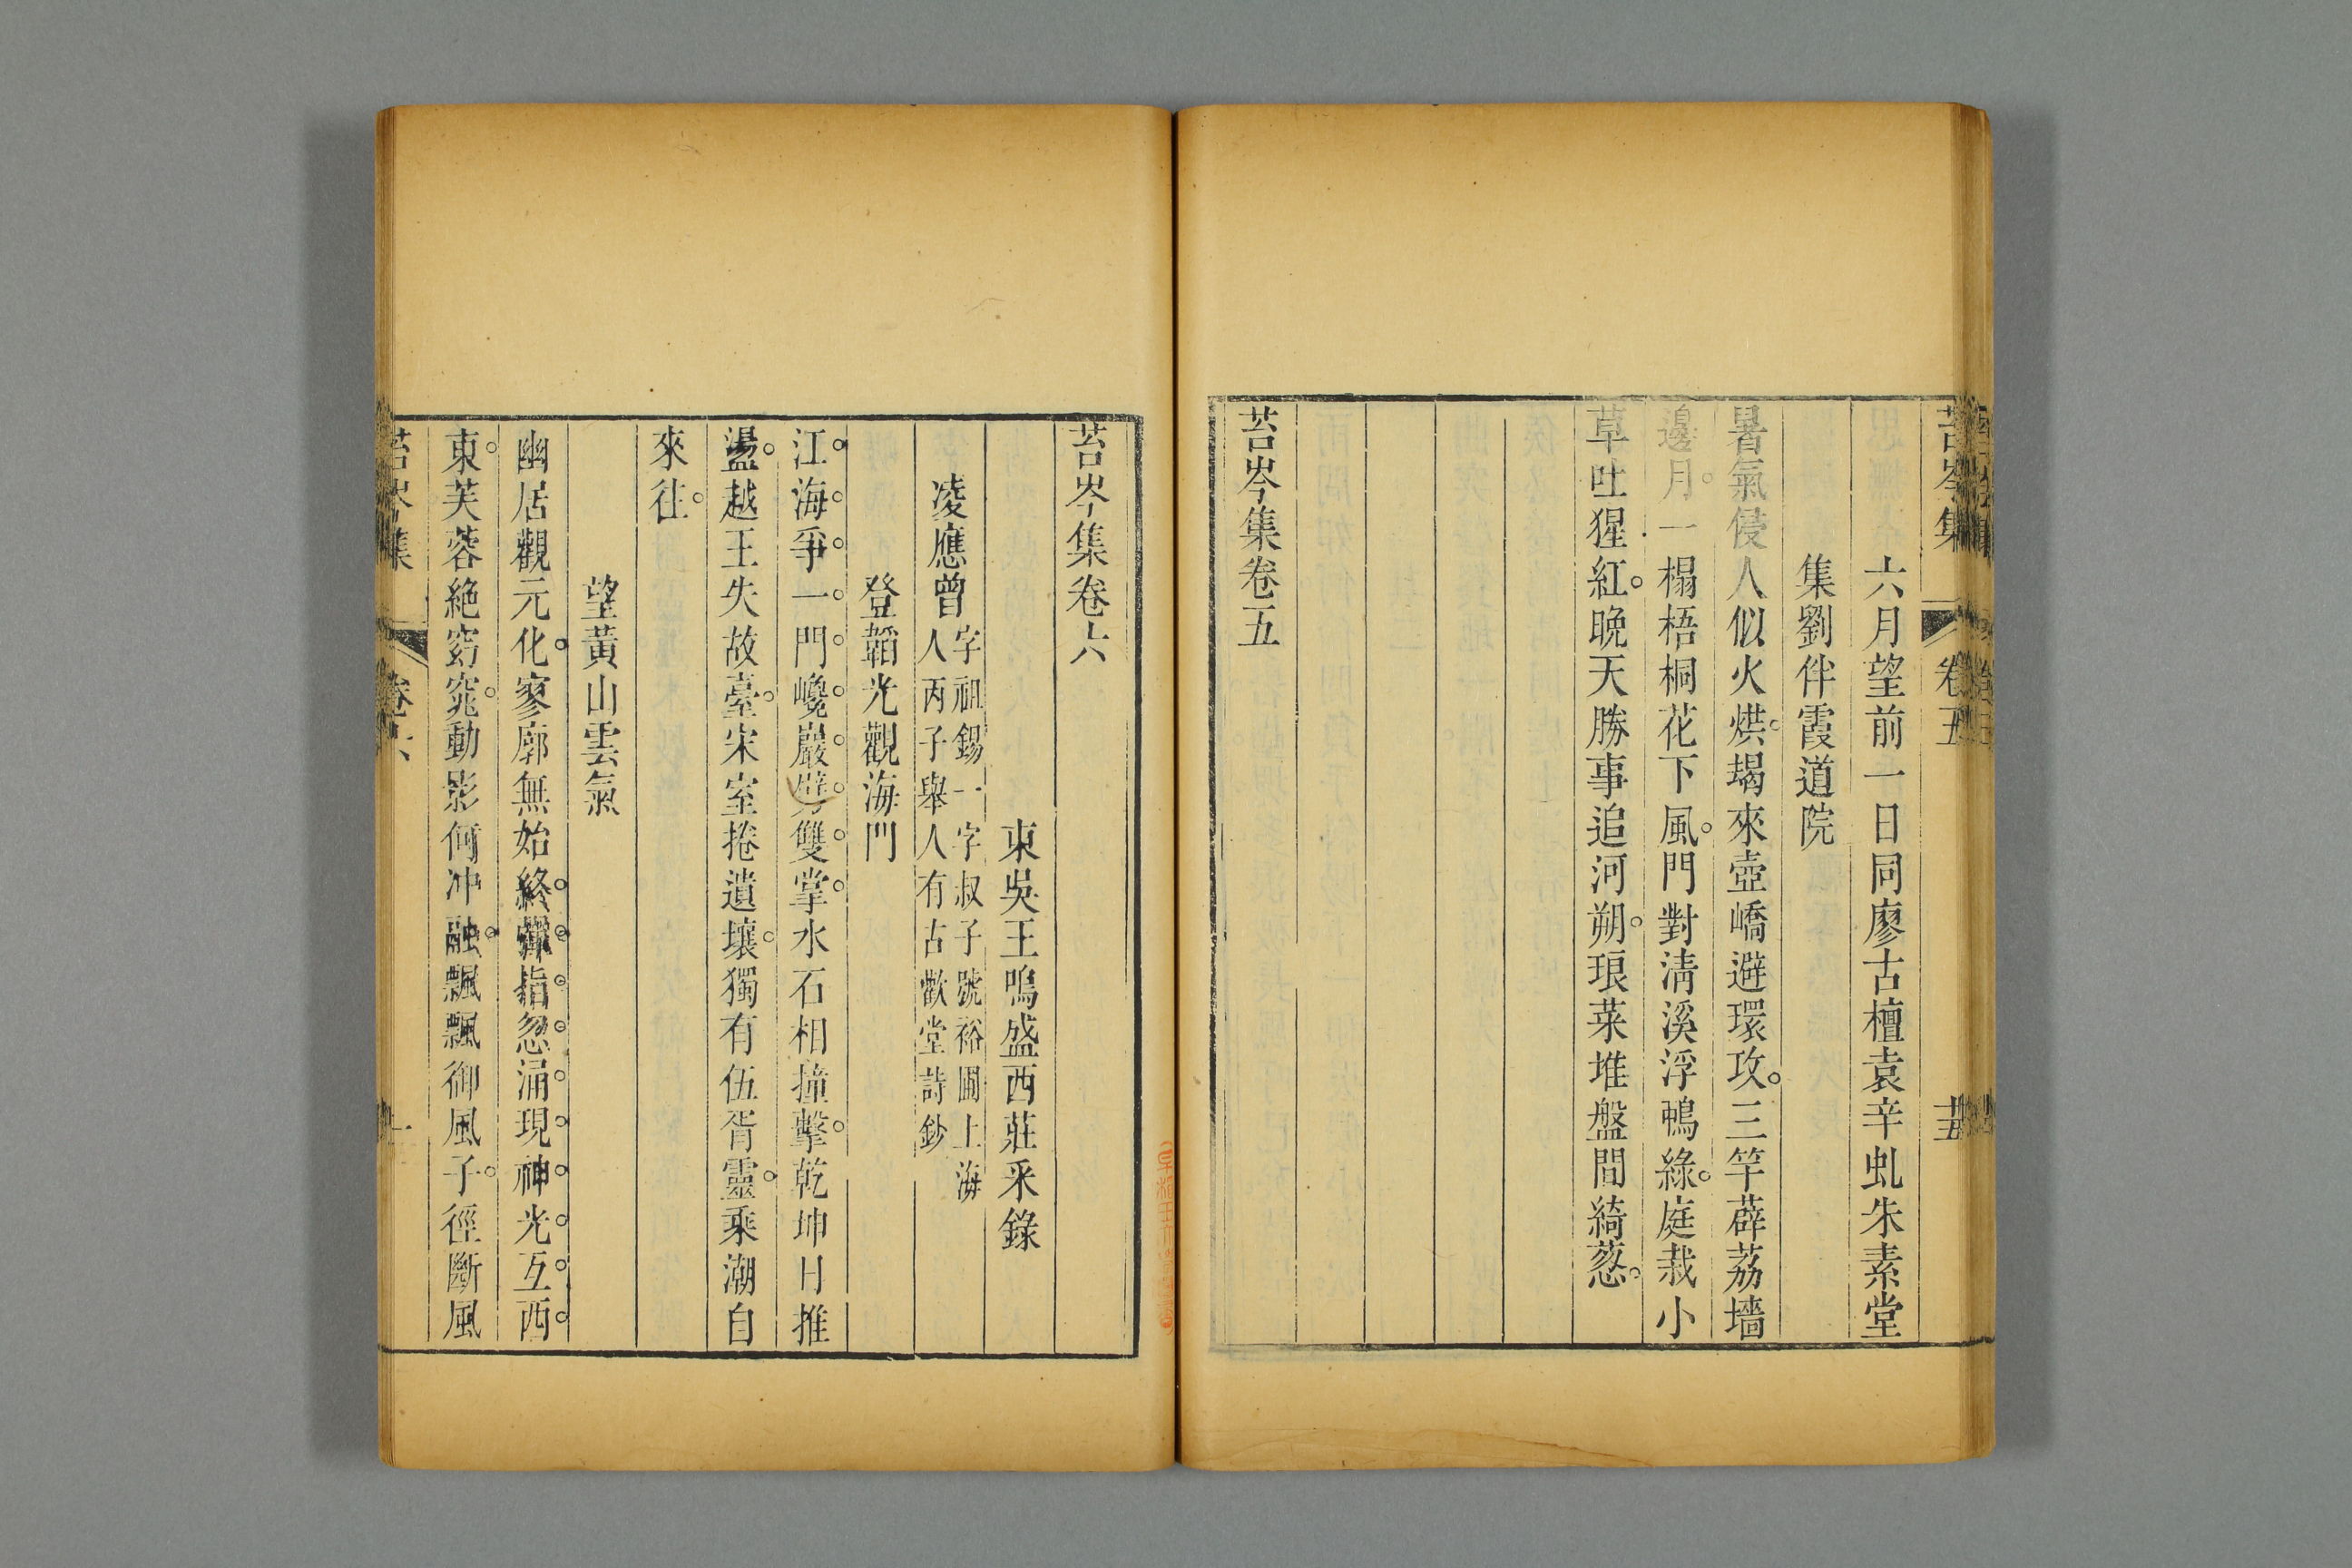 苔岑集 卷五
六月望前一日同廖古檀袁辛虬朱素堂
集劉伴霞道院
暑氣侵人似火烘。朅來壺嶠避環攻。三竿薜荔墻
邊月。一榻梧桐花下風。門對淸溪浮鴨綠。庭栽小
草吐猩紅。晚天勝事追河朔。琅菜堆盤間綺葱。
苔岑集卷五
苔岑集卷六
東吳王鳴盛西莊采錄
凌應曾
字祖錫一字叔子號裕圃上海
人丙子舉人有古歡堂詩鈔
登韜光觀海門
江海爭一門巉巖劈雙掌水石相撞擊。乾坤日推
盪。越王失故臺。宋室捲遺壤。獨有伍胥靈。乘潮自
來往。
望黃山雲氣
幽居觀元化。寥廓無始終。彈指忽涌現神光互西
東。芙蓉絕窈窕。動影何沖融。飄飄御風子。徑斷風
苔岑集 卷六 一